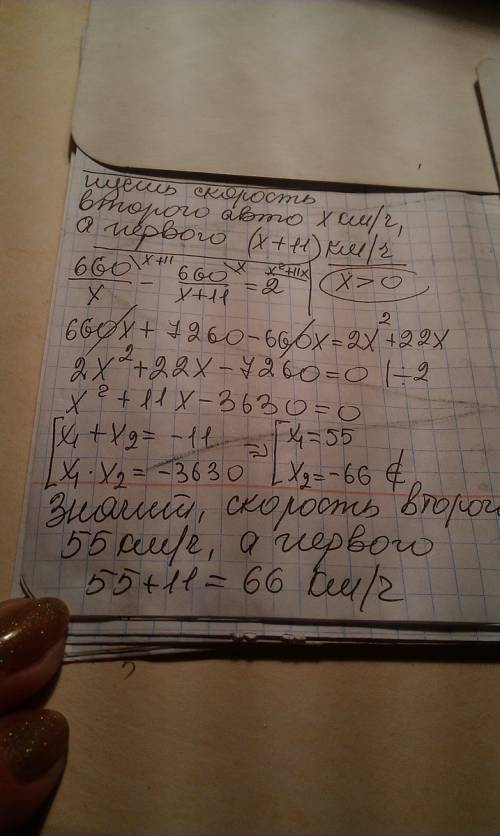 пусть скорость
второго авто x км/ч,
а первого (x+11) км/ч
660/x \x+11 - 660/x+11 \x = 2 \x²+11x | x>0
660x + 7260 - 660x = 2x² + 22x
2x² + 22x - 7260 = 0 | ÷2
x² + 11x - 3630 = 0
[x₁ + x₂ = -11 => [x₁ = 55
[x₁ · x₂ = -3630 [x₂ = -66 ∉
Значит, скорость второго
55 км/ч, а первого
55+11 = 66 км/ч